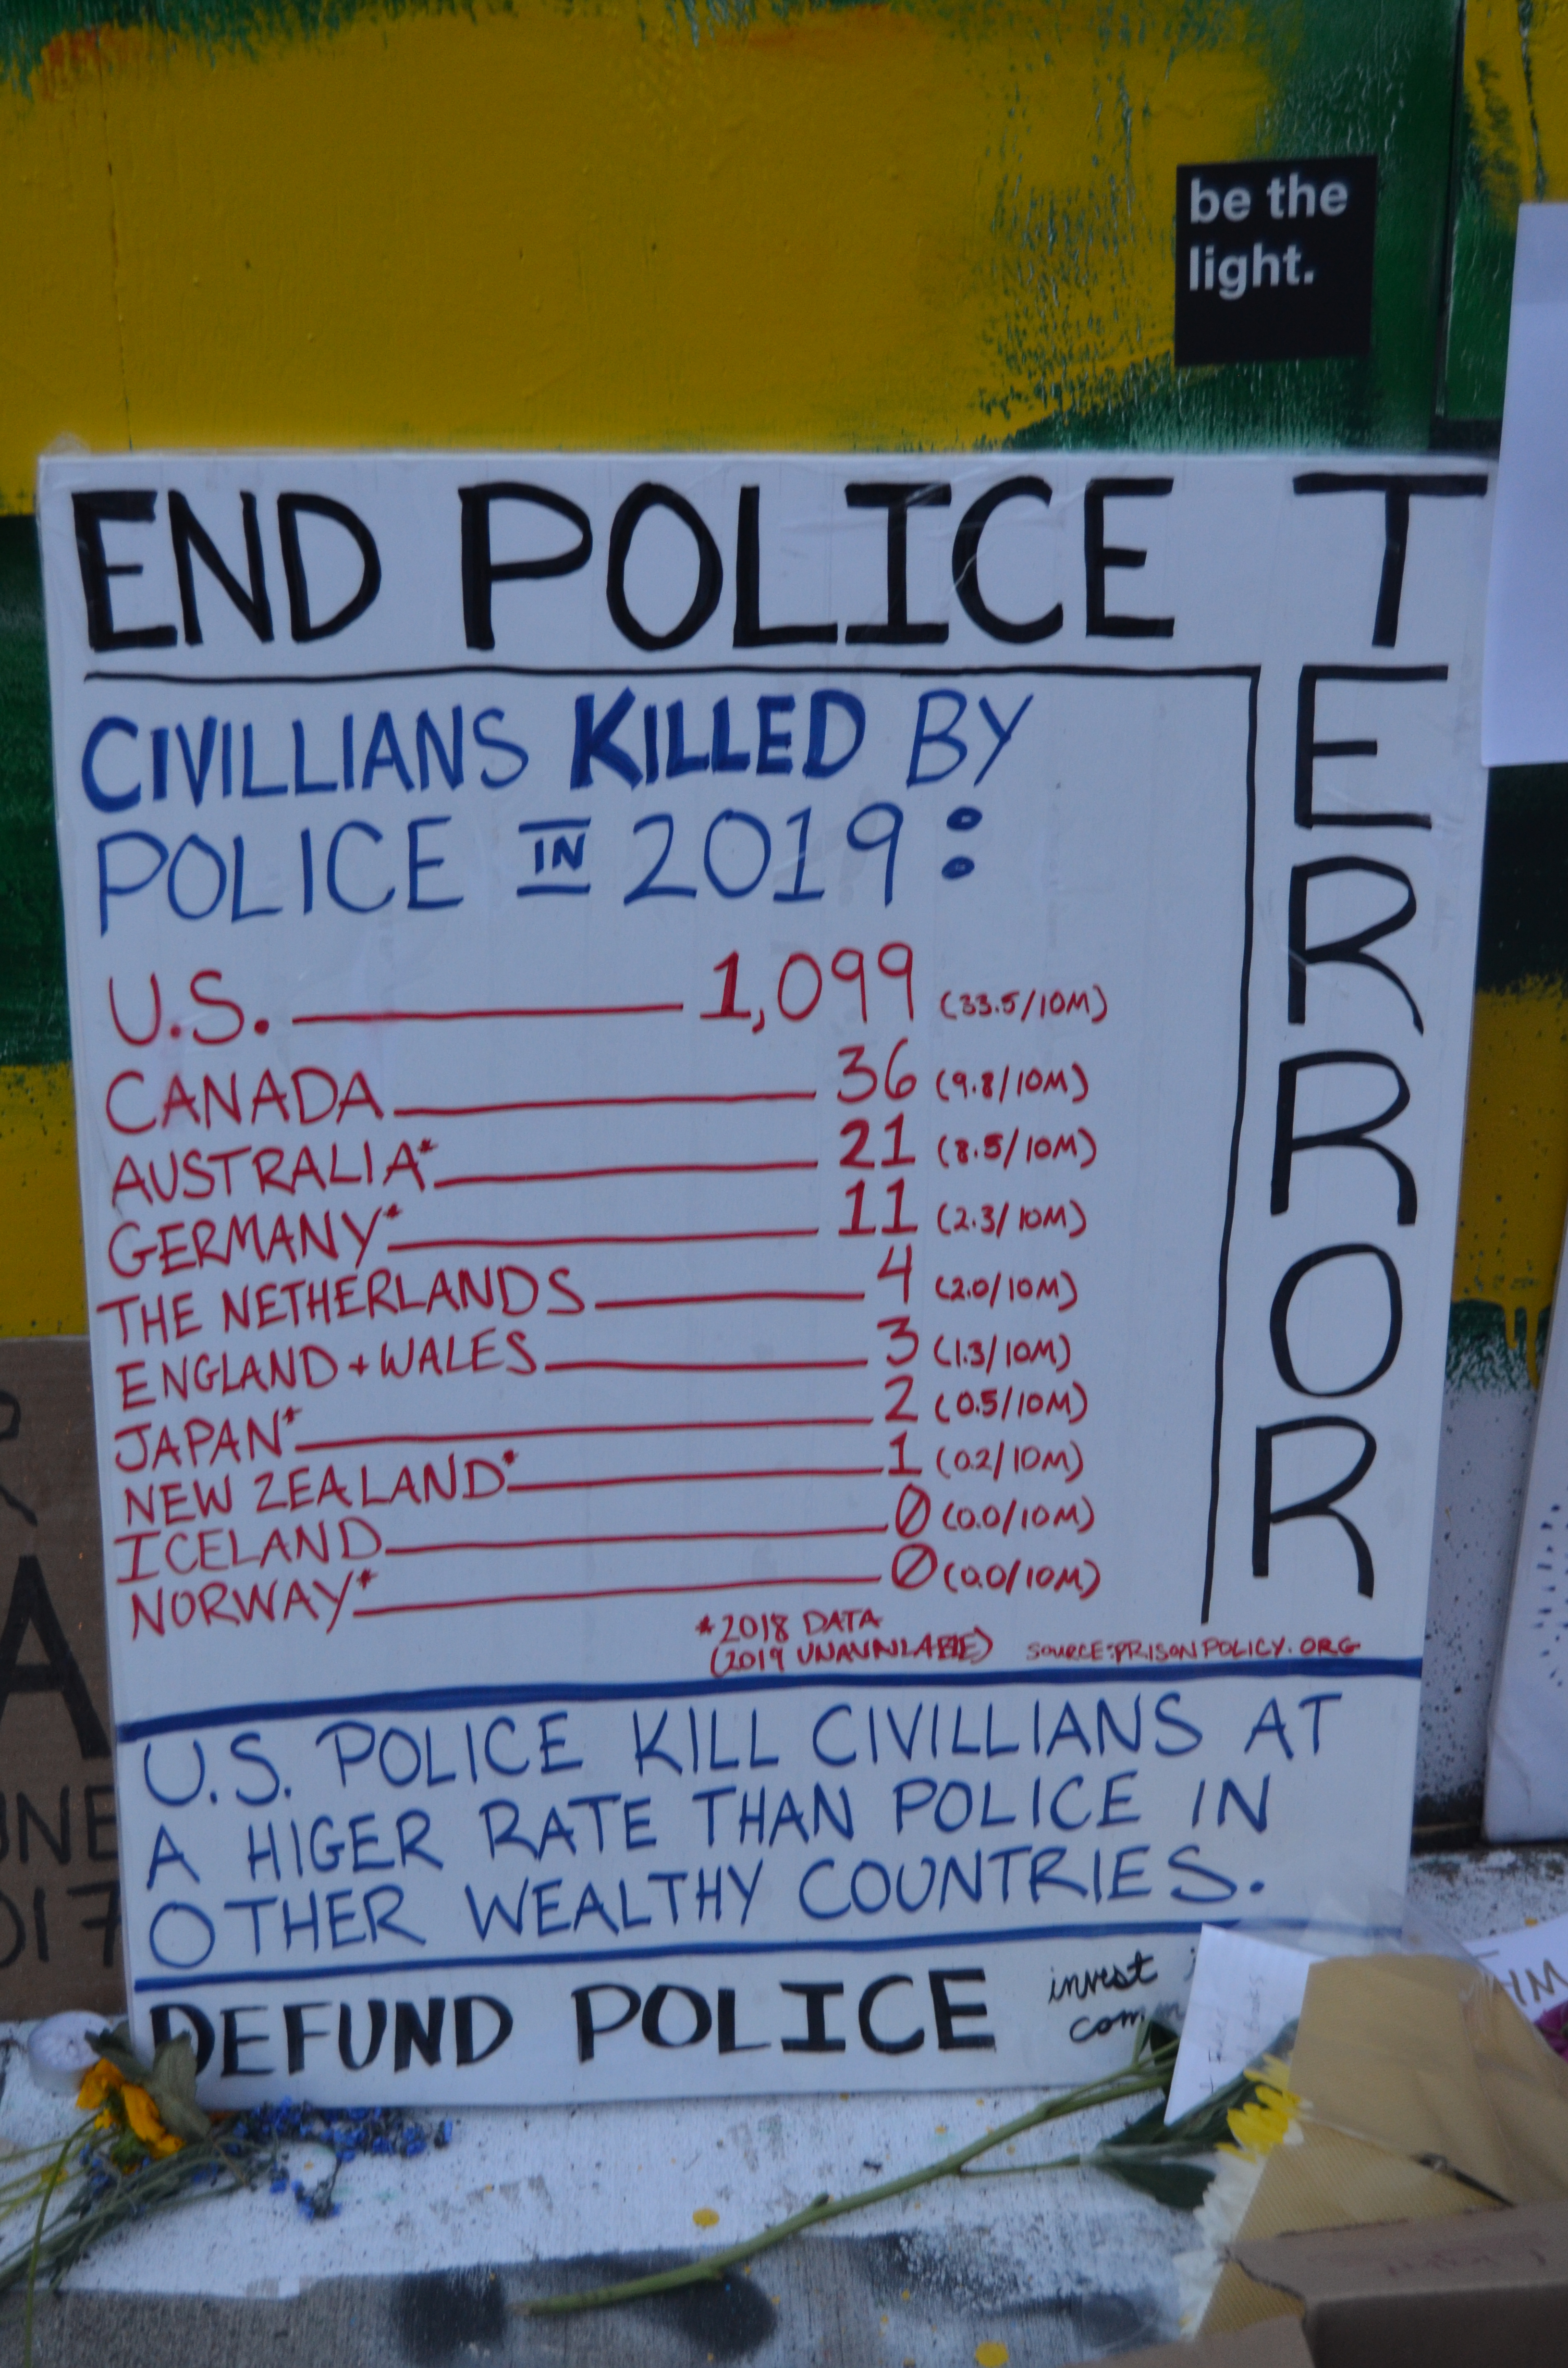 be the
light.
END POLICE TERROR
CIVILLIANS KILLED BY
POLICE IN 2019:
U.S. 1,099 (33.5/10M)
CANADA 36 (9.8/10M)
AUSTRALIA* 21 (8.5/10M)
GERMANY* 11 (2.3/10M)
THE NETHERLANDS 4 (2.0/10M)
ENGLAND + WALES 3 (1.3/10M)
JAPAN* 2 (0.5/10M)
NEW ZEALAND* 1 (0.2/10M)
ICELAND 0 (0.0/10M)
NORWAY* 0 (0.0/10M)
*2018 DATA
(2019 UNAVAILABLE) SOURCE: PRISONPOLICY.ORG
U.S. POLICE KILL CIVILLIANS AT
A HIGER RATE THAN POLICE IN
OTHER WEALTHY COUNTRIES.
DEFUND POLICE invest